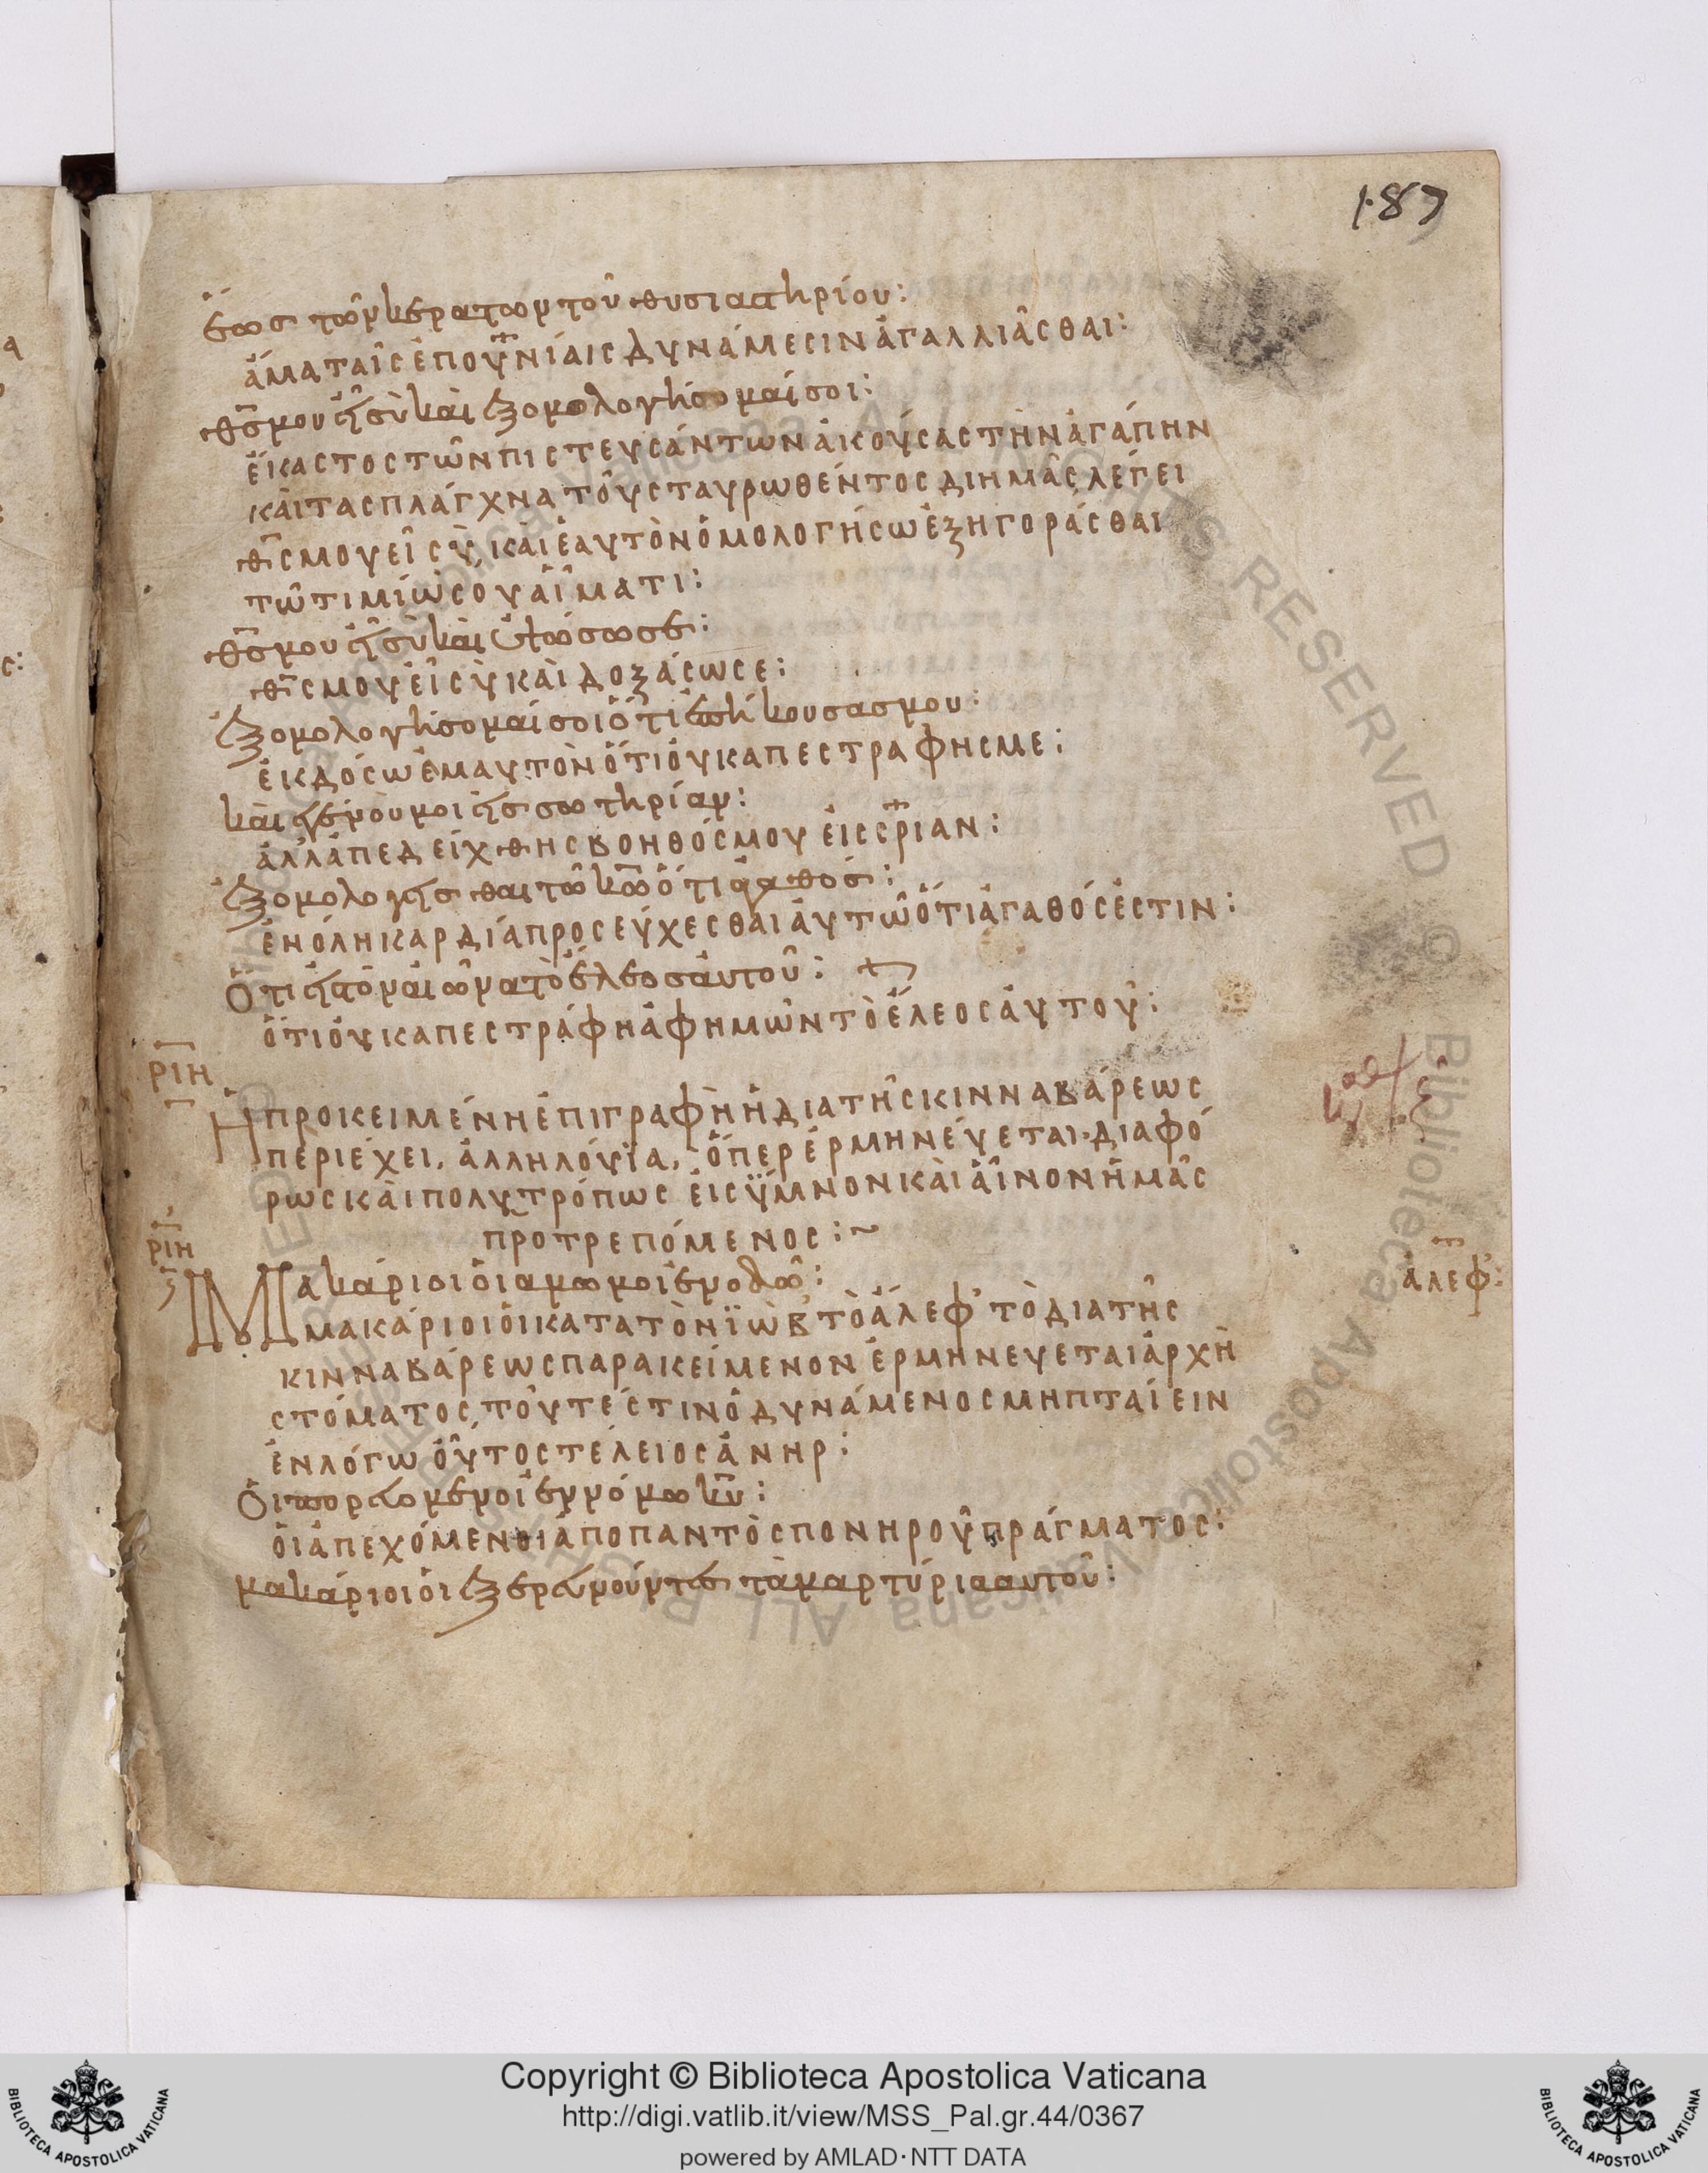 183
ἕως τῶν κεράτων τοῦ θυσιαστηρίου:
ἅμα ταῖς ἐπουνίαις δυνάμεσιν ἀγαλλιᾶσθαι:
θς μου εἶ σὺ καὶ ἐξομολογήσομαί σοι:
ἕκαστος τῶν πιστευσάντων ἀκούσας τὴν ἀγάπην
καὶ τα σπλάγχνα τοῦ σταυρωθέντος δι ημᾶς λέγει
θς μου εἶ σύ, καὶ ἑαυτὸν ὁμολογήσω ἐξηγοράσθαι
τῶ τιμίω σου αἵματι:
θς μου εἶ σὺ καὶ ὑψώσω σε:
θς μου εἶ σὺ καὶ δοξάσω σε:
ἐξομολογήσομαί σοι ὅτι ἐπήκουσας μου:
ἐκδόσω ἐμαυτὸν ὅτι οὐκ απεστραφης με:
καὶ ἐγένου μοι εἰς σωτηρίαν:
ἀλλ' ἀπεδείχθης βοηθός μου εἰς σριαν:
ἐξομολογεῖσθαι τῶ κω ὅτι ἀγαθός:
ἐν ὅλη καρδία προσεύχεσθαι αὐτῶ ὅτι ἀγαθός ἐστιν:
Ὅτι εἰς τὸν αἰῶνα τὸ ἔλεος αὐτοῦ:
ὅτι οὐκ απεστράφη ἀφ ημῶν τὸ ἔλεος αὐτοῦ:
ριη
Ἡ προκειμένη ἐπιγραφὴ ἡ διὰ τῆς κινναβάρεως
περιέχει, ἀλληλούϊα, ὅπερ ἑρμηνεύεται διαφό
ρως καὶ πολυτρόπως εἰς ὕμνον καὶ αἶνον ἡμᾶς
προτρεπόμενος:~
ριη
Μακάριοι οἱ αμωμοι ἐν οδῶ:
ἀλεφ:
μακάριοι οἱ κατα τὸν ϊὼβ τὸ ἄλεφ τὸ διατῆς
κινναβάρεως παρακείμενον ἑρμηνευεται ἀρχὴ
στόματος, τουτέστιν ὁ δυνάμενος μη πταίειν
ἐν λόγω οὗτος τέλειος ἀνηρ:
Οἱ πορευομενοι ἐν νόμω κυ:
οἱ ἀπεχόμενοι ἀπο παντὸς πονηροῦ πράγματος:
μακάριοι οἱ ἐξερευνούντες τὰ μαρτύρια αυτοῦ:
Copyright © Biblioteca Apostolica Vaticana
http://digi.vatlib.it/view/MSS_Pal.gr.44/0367
powered by AMLAD·NTT DATA